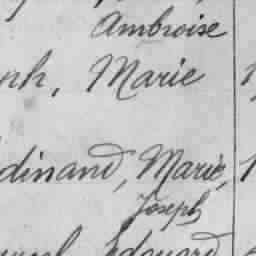 Ambroise
nh, Marie
dinand, Marie,
Joseph
Edouard